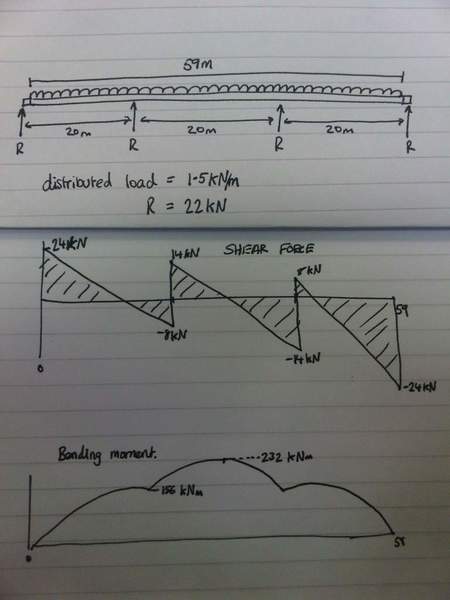 59m
20m 20m 20m
R R R R
distributed load = 1.5kN/m
R = 22kN
24kN 14kN SHEAR FORCE 8kN
59
-8kN
-14kN
0
-24kN
Bending moment.
232 kNm
156 kNm
0